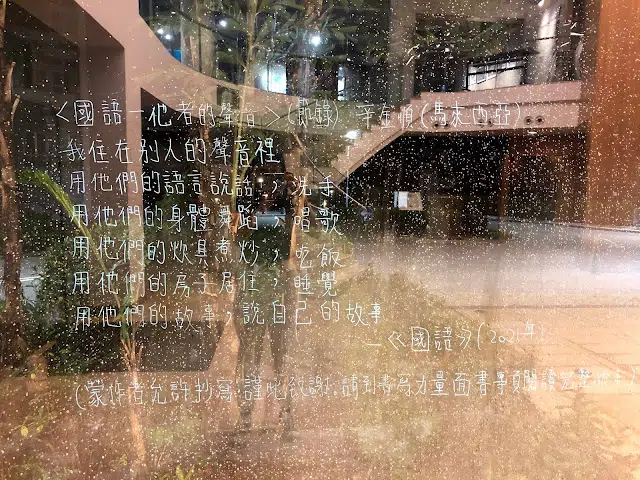 〈國語－他者的聲音〉(節錄) 辛金順(馬來西亞)
我住在別人的聲音裡
用他們的語言說話，洗手
用他們的身體舞蹈，唱歌
用他們的炊具煮炒，吃飯
用他們的房子居住，睡覺
用他們的故事，說自己的故事
－《國語》(2021年)
(蒙作者允許抄寫，謹此致謝。請到書寫力量面書專頁閱讀完整